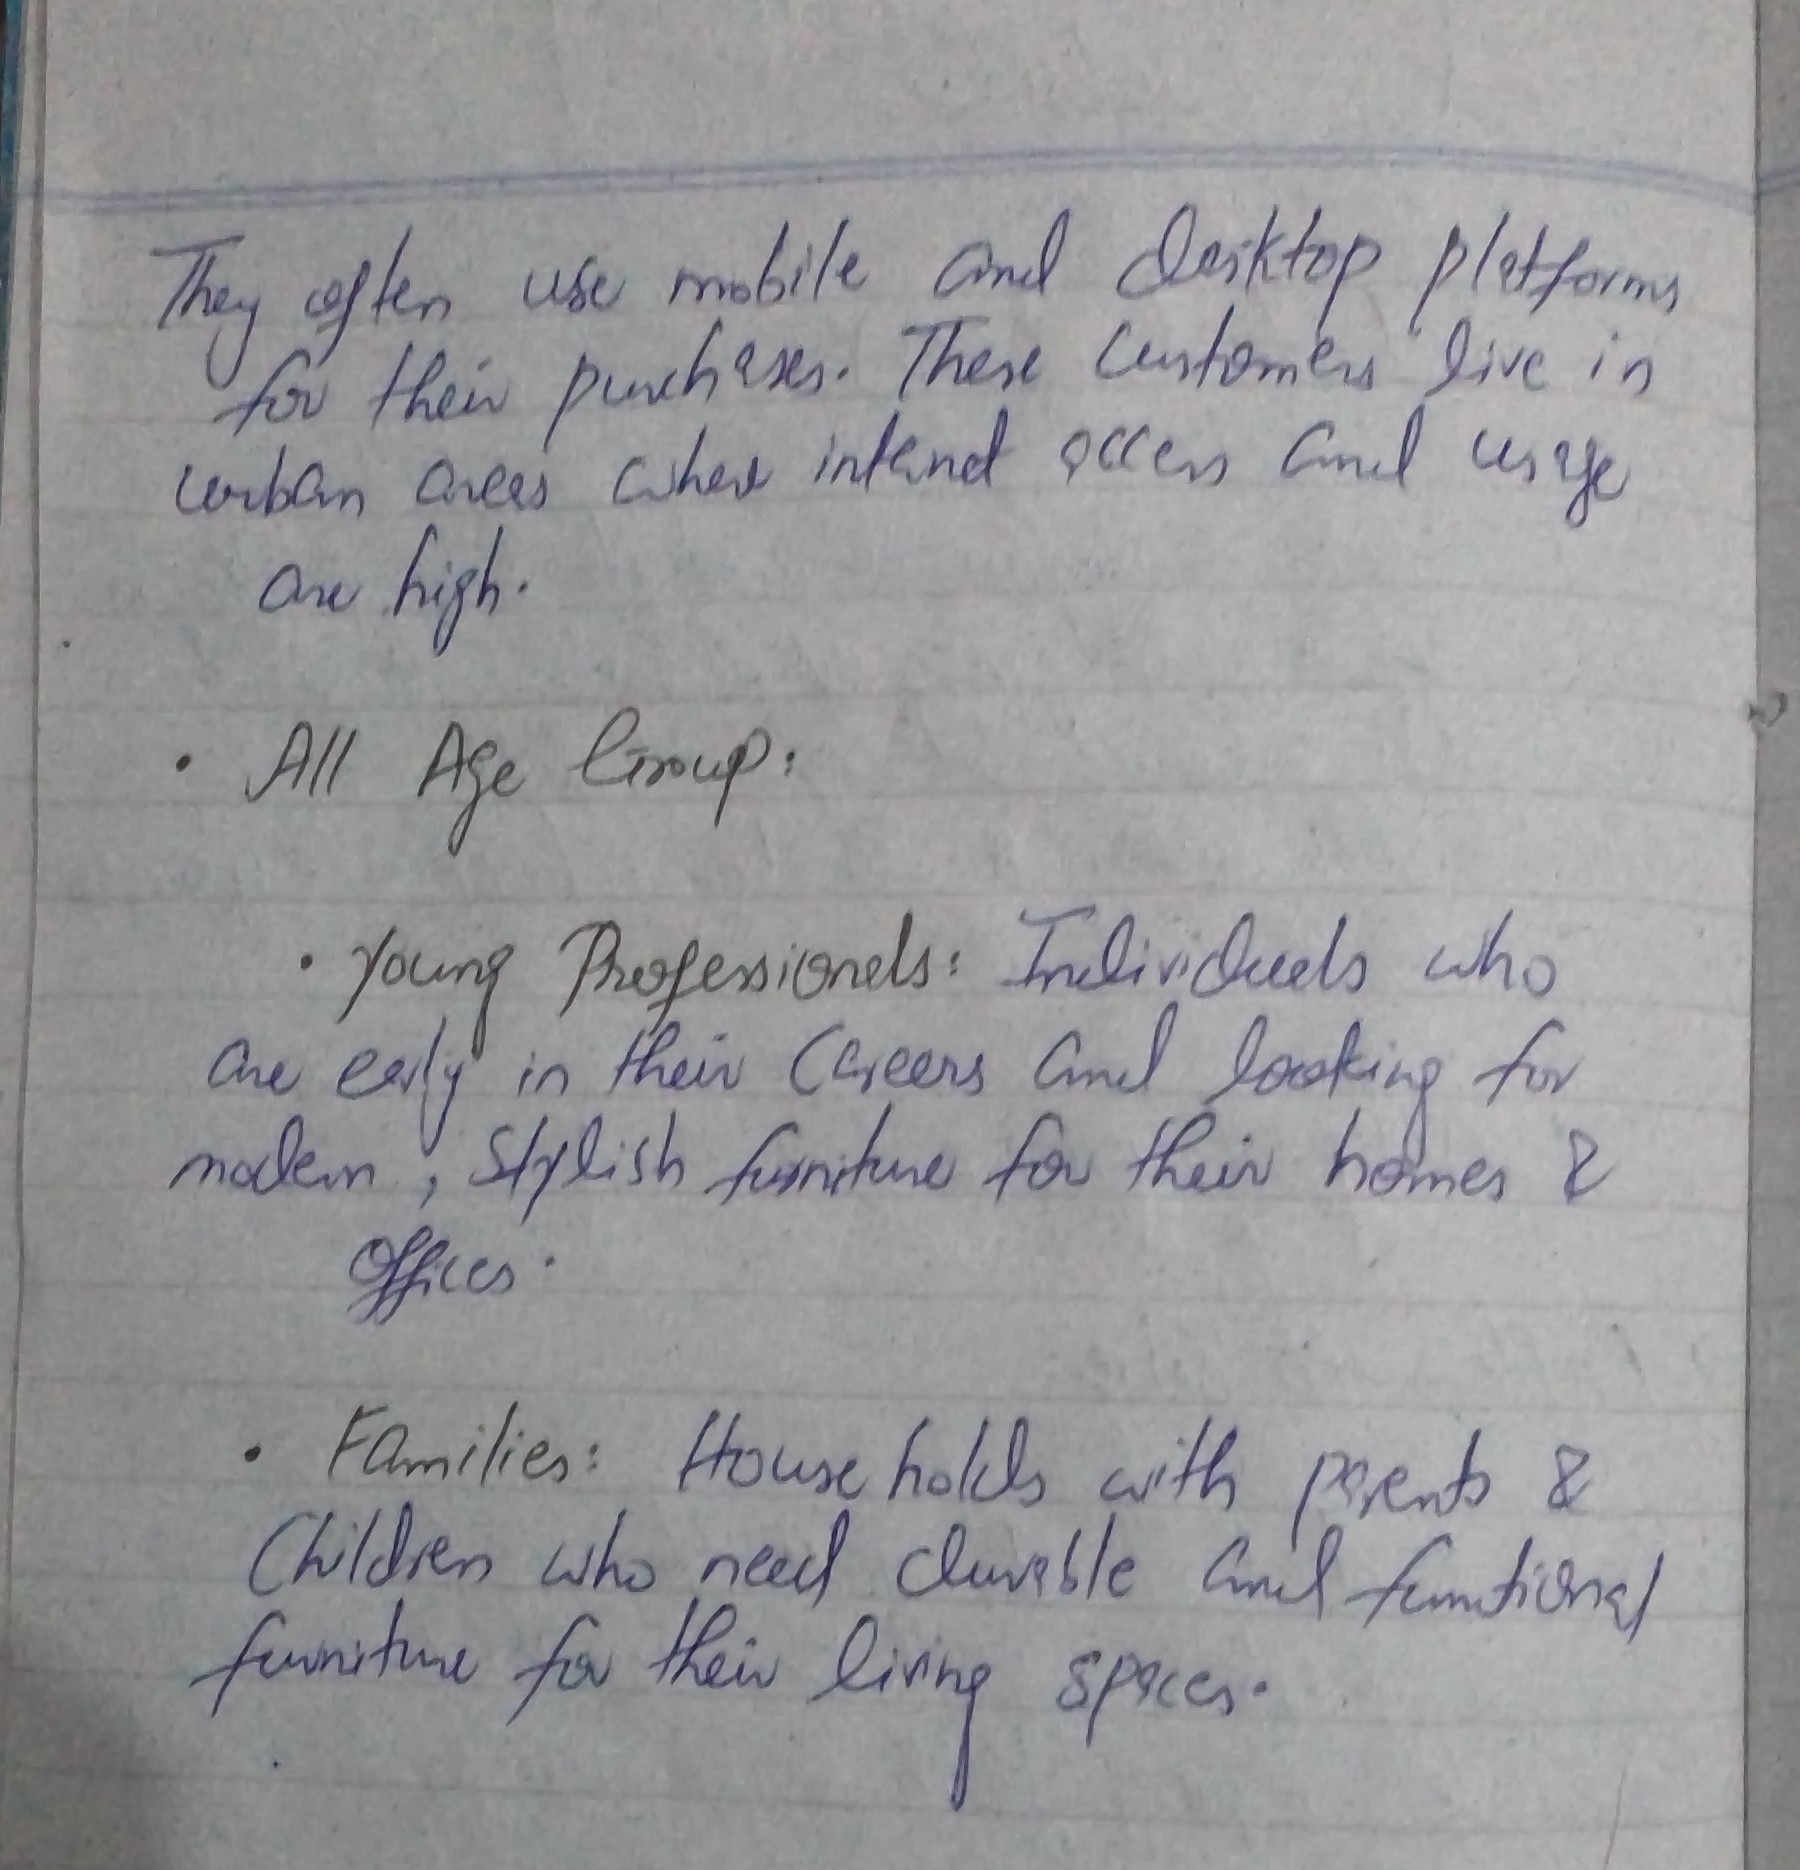 They often use mobile and desktop platforms
for their purchases. These customers live in
urban areas where internet access and usage
are high.
• All Age Group:
• Young Professionals: Individuals who
are early in their careers and looking for
modern, stylish furniture for their homes &
offices.
• Families: Households with parents &
Children who need durable and functional
furniture for their living spaces.